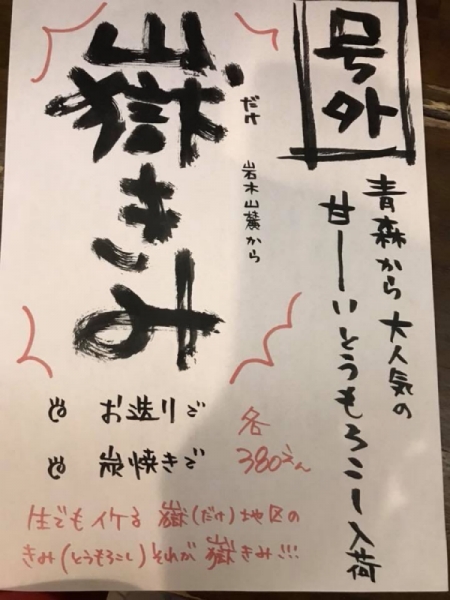 号外
青森から大人気の
甘ーーいとうもろこし入荷
嶽きみ
だけ 岩木山麓から
お造りで
炭焼きで
各
380えん
生でもイケる 嶽(だけ)地区の
きみ(とうもろこし)それが嶽きみ!!!